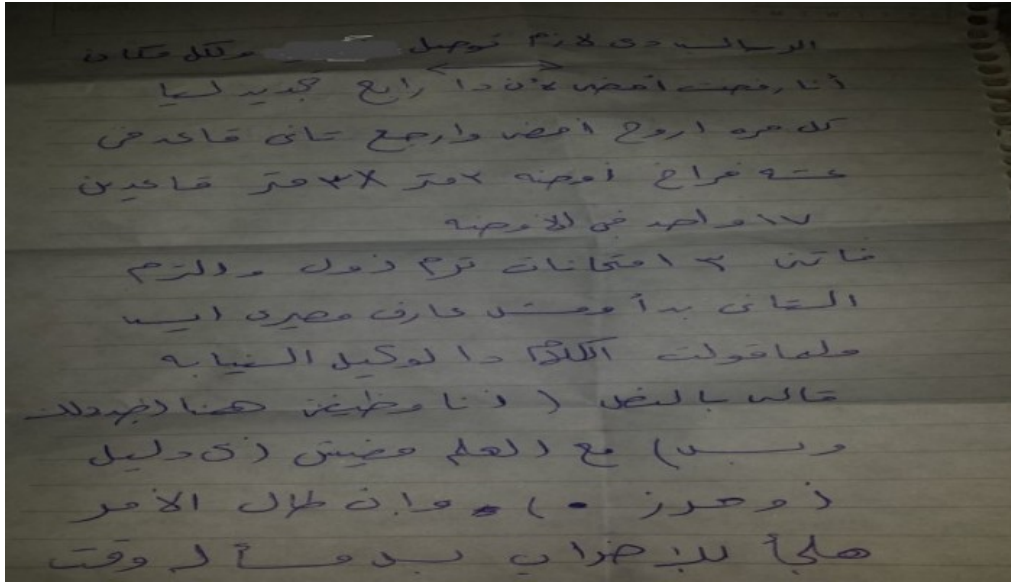 الرسالة دى لازم توصل ولكل مكان
أنا رفضت أمضى لأن دا رابع تجديد ليا
كل مره اروح أمضى وارجع تانى قاعد فى
عشة فراخ أوضه ٢متر X ٣متر قاعدين
١٧ واحد فى الأوضه
فاتنى ٣ امتحانات ترم أول والترم
التانى بدأ ومش عارف مصيرى ايه
ولما قولت الكلام دا لوكيل النيابه
قالى بالنص ( أنا وظيفتى هنا اجددلك
وبس) مع العلم مفيش (أى دليل
أو حرز ) وان طال الأمر
هلجأ للإضراب وقت